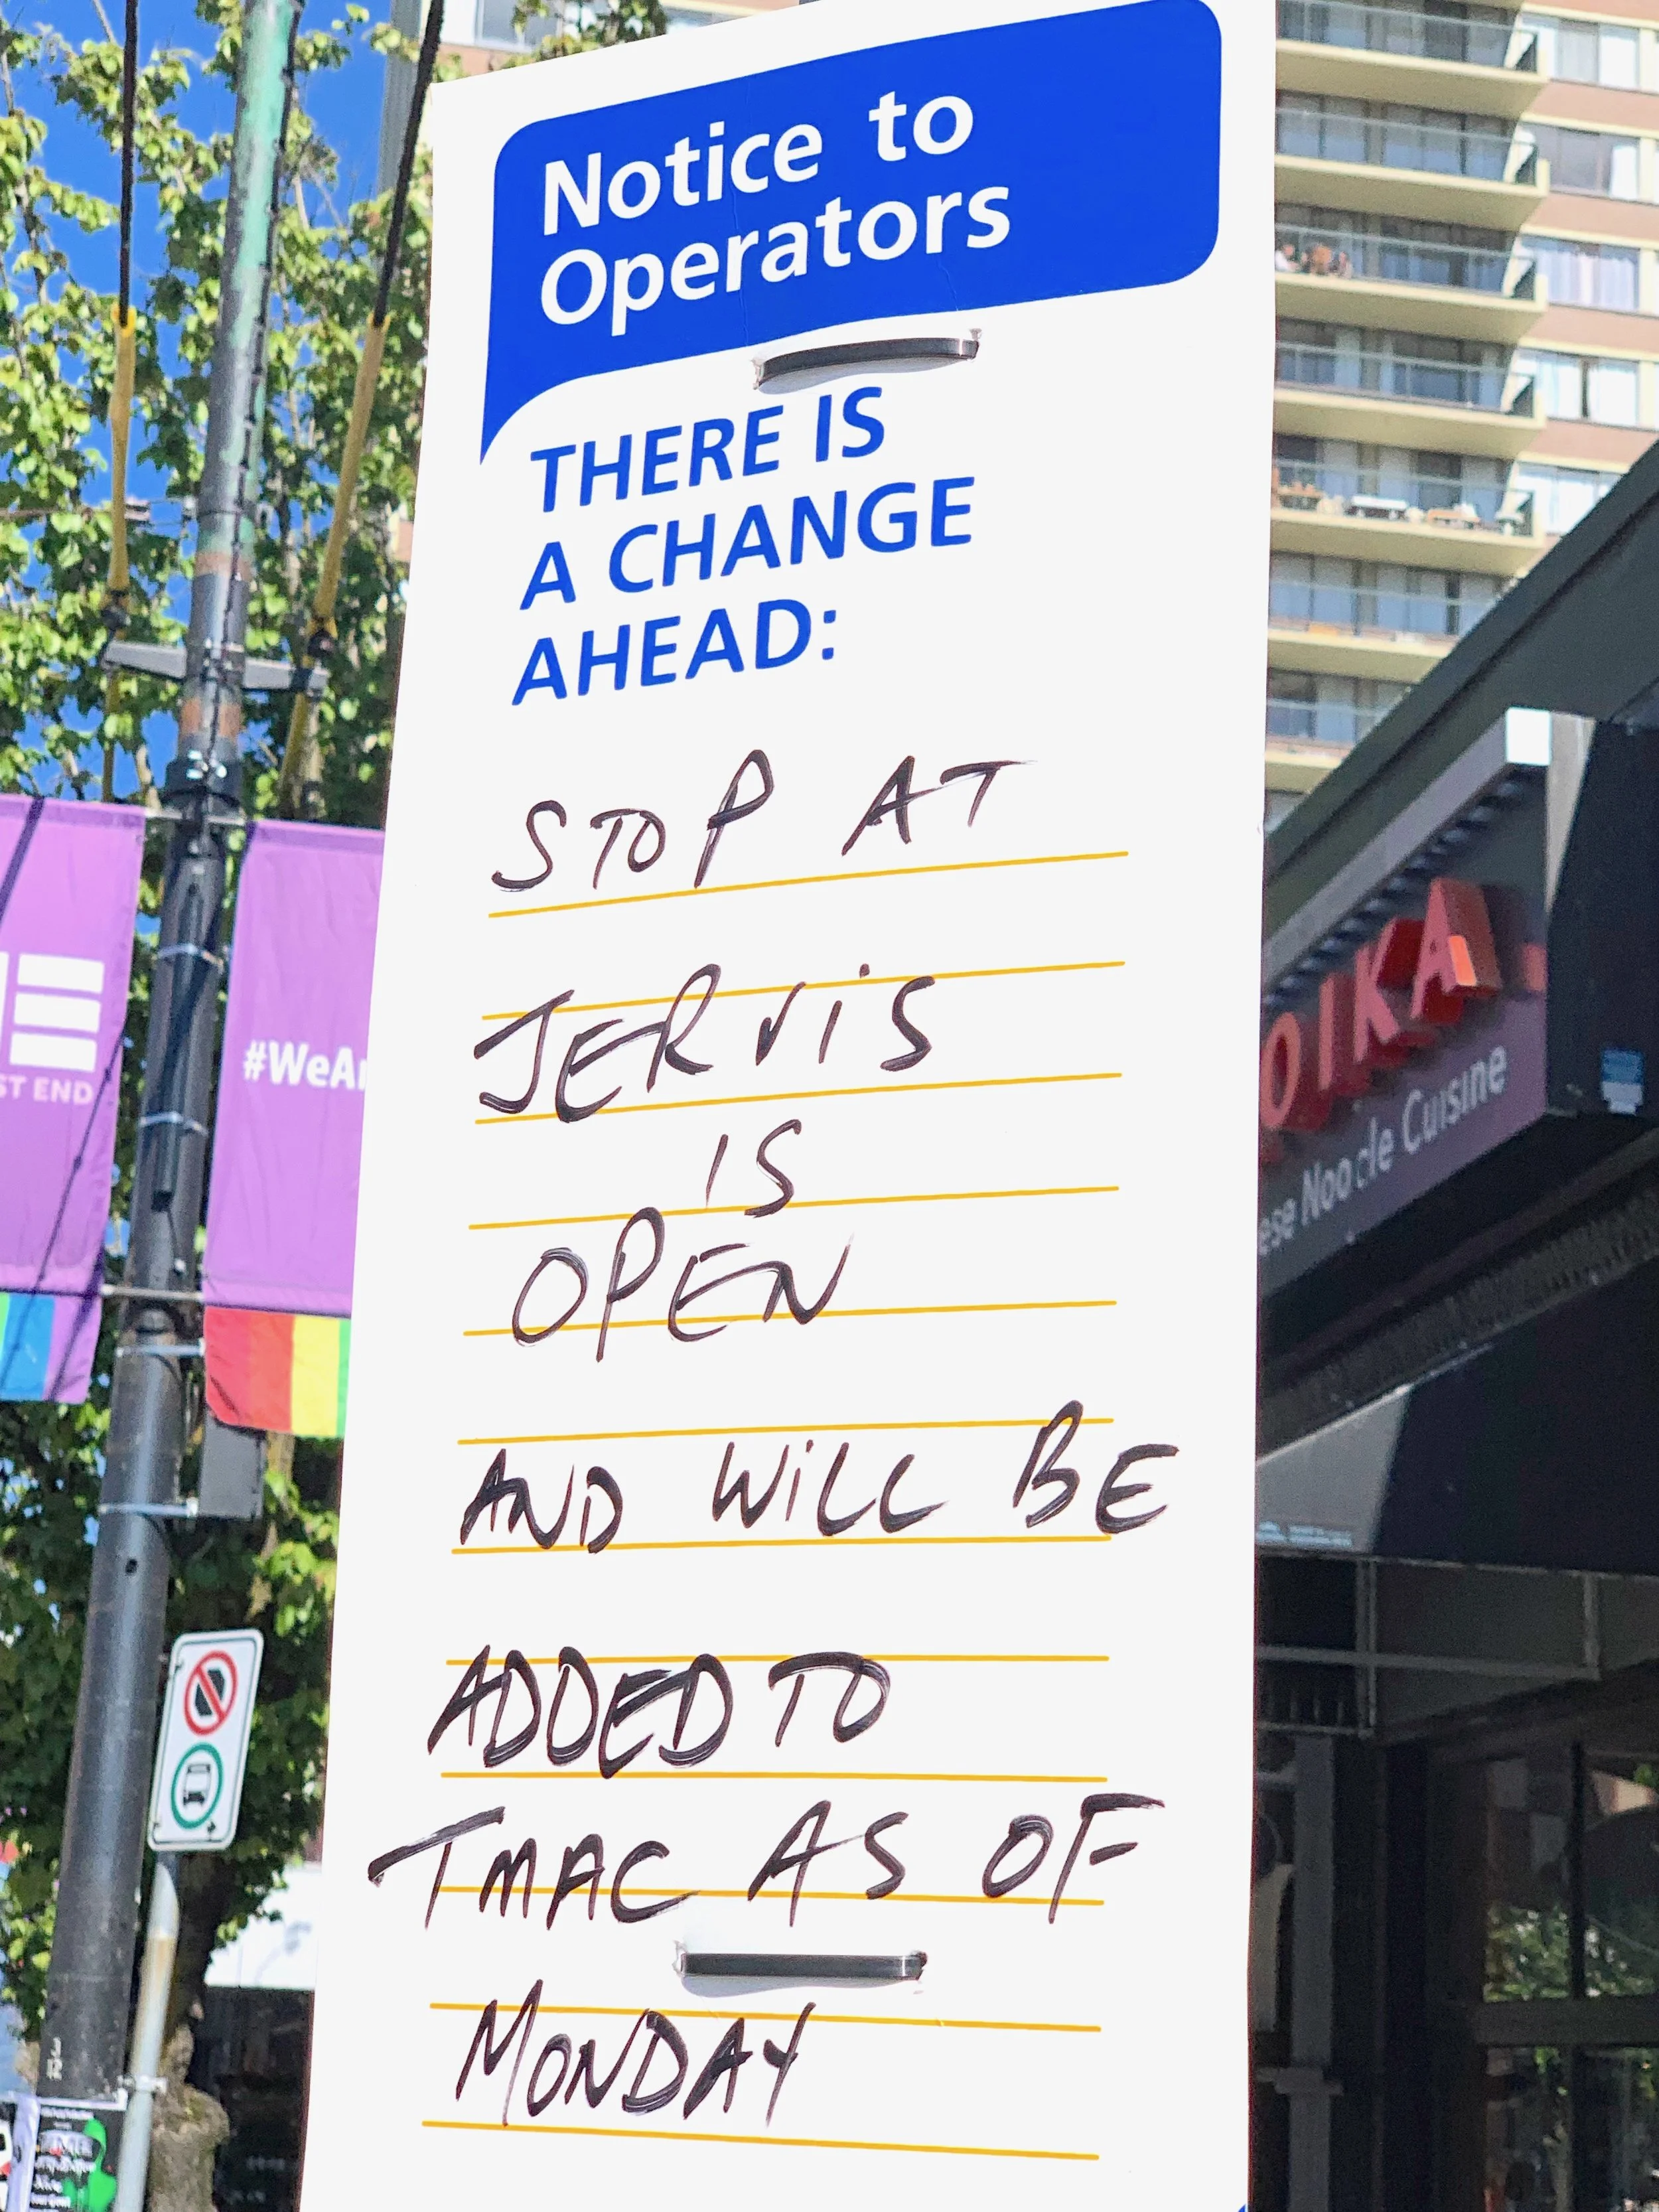 Notice to
Operators
THERE IS
A CHANGE
AHEAD:
STOP AT
JERViS
IS
OPEN
AND WiLL BE
ADDED TO
TMAC AS OF
MONDAY
ST END
#WeAr
OIKA
ese Noodle Cuisine